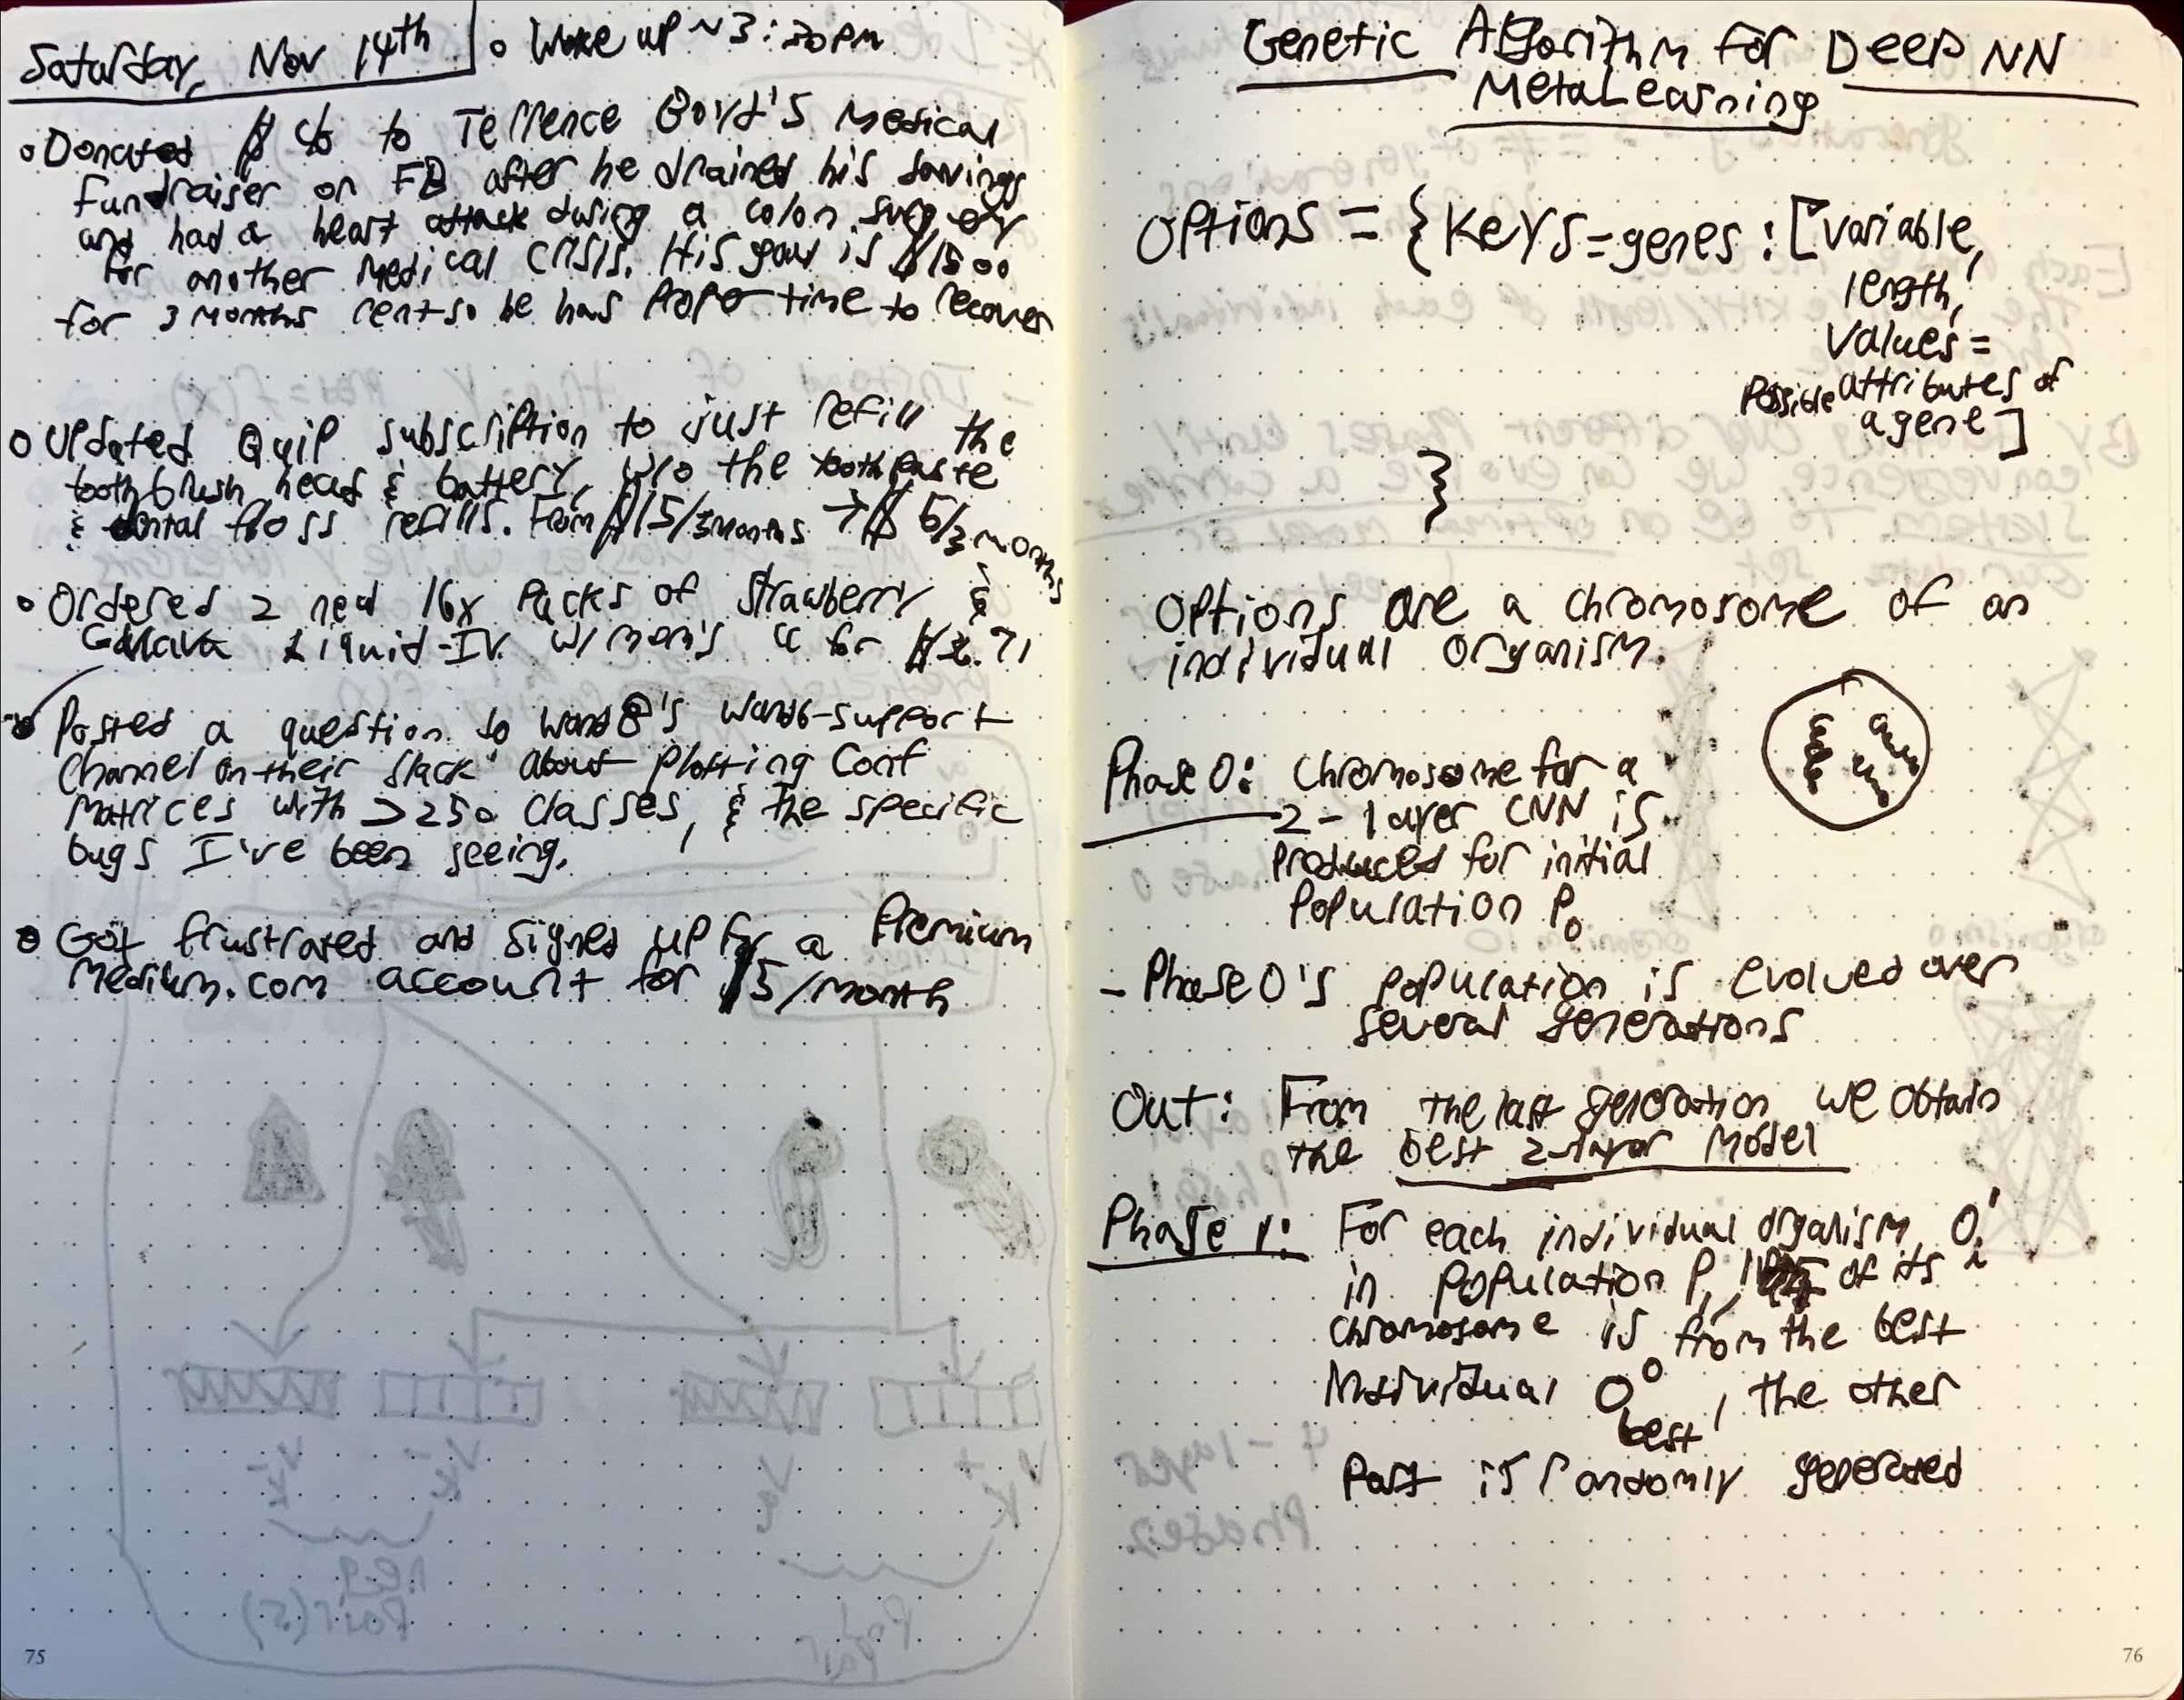 Saturday, Nov 14th
o Woke up ~3:30PM
o Donated $ to Terrence Boyd's medical
fundraiser on FB after he drained his savings
and had a heart attack during a colon surgery
for another medical crisis. His goal is $1500
for 3 months rent so he has proper time to recover
o Updated Quip subscription to just refill the
toothbrush head & battery, w/o the toothpaste
& dental floss refills. From $15/3months → $5/3months
o Ordered 2 new 16x packs of Strawberry &
Guava Liquid-IV w/ mom's cc for
o Posted a question to WandB's wandb-support
channel on their slack about plotting Conf
matrices with >250 classes, & the specific
bugs I've been seeing.
o Got frustrated and signed up for a Premium
Medium.com account for $5/month
75
Genetic Algorithm for Deep NN
MetaLearning
Options = { keys=genes : [variable,
length,
values =
possible attributes of
a gene]
}
Options are a chromosome of an
individual organism.
Phase 0: Chromosome for a
2-layer CNN is
produced for initial
population P0
- Phase 0's population is evolved over
several generations
Out: From the last generation we obtain
the best 2-layer model
Phase 1: For each individual organism, O¹i
in population P1, of its
chromosome is from the best
individual O⁰best, the other
Part is randomly generated
76